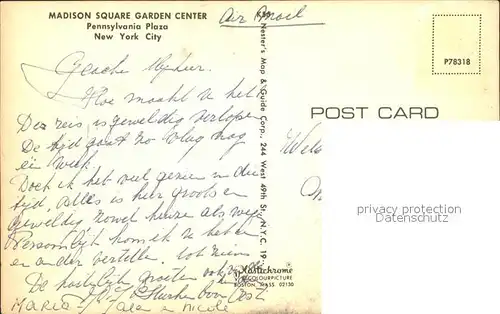 MADISON SQUARE GARDEN CENTER
Pennsylvania Plaza
New York City
Air Mail
P78318
POST CARD
Geachte Mijnheer.
Hoe maakt u het
De reis is geweldig verlope
De tijd gaat zo vlug nog
eén week.
Doch ik heb veel gezien in die
tijd, alles is hier groots en
geweldig zowel heuze als weg
Persoonlijk kom ik u het een
en ander vertellen. tot ziens
De hartelijke groeten ook van
Maria - Jean en Nicole
Nester's Map & Guide Corp., 244 West 49th St., N.Y.C. 19
Plastichrome
COLOURPICTURE
BOSTON, MASS. 02130
privacy protection